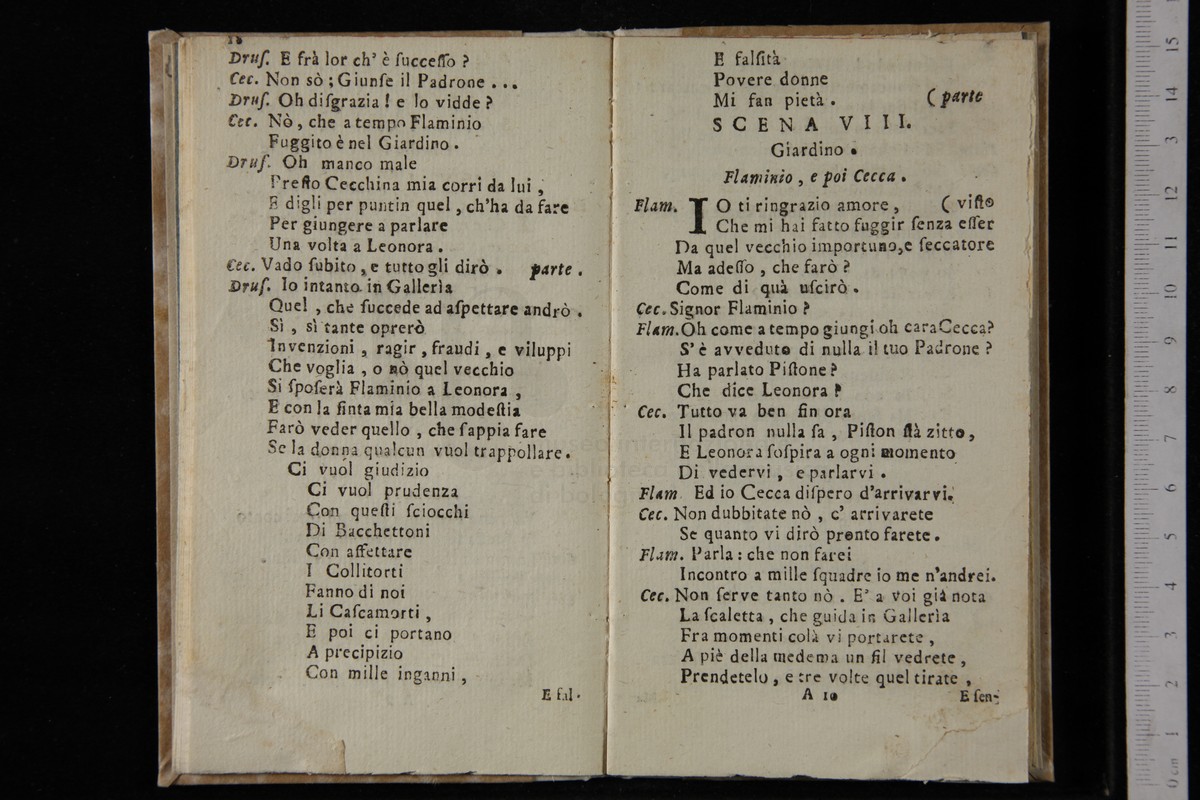 18
Druſ. E frà lor ch' è ſucceſſo ?
Cec. Non sò ; Giunſe il Padrone ...
Druſ. Oh diſgrazia ! e lo vidde ?
Cec. Nò, che a tempo Flaminio
Fuggito è nel Giardino .
Druſ. Oh manco male
Preſto Cecchina mia corri da lui ,
E digli per puntin quel , ch'ha da fare
Per giungere a parlare
Una volta a Leonora .
Cec. Vado ſubito , e tutto gli dirò . parte .
Druſ. Io intanto in Gallerìa
Quel , che ſuccede ad aſpettare andrò .
Sì , sì tante oprerò
Invenzioni , ragir , fraudi , e viluppi
Che voglia , o nò quel vecchio
Si ſpoſerà Flaminio a Leonora ,
E con la finta mia bella modeſtia
Farò veder quello , che ſappia fare
Se la donna qualcun vuol trappollare .
Ci vuol giudizio
Ci vuol prudenza
Con queſti ſciocchi
Di Bacchettoni
Con affettare
I Collitorti
Fanno di noi
Li Caſcamorti ,
E poi ci portano
A precipizio
Con mille inganni ,
E fal-
E falſità
Povere donne
Mi fan pietà . ( parte
SCENA VIII.
Giardino .
Flaminio , e poi Cecca .
Flam. IO ti ringrazio amore , ( viſto
Che mi hai fatto fuggir ſenza eſſer
Da quel vecchio importuno, e ſeccatore
Ma adeſſo , che farò ?
Come di quà uſcirò .
Cec. Signor Flaminio ?
Flam. Oh come a tempo giungi oh cara Cecca?
S' è avveduto di nulla il tuo Padrone ?
Ha parlato Piſtone ?
Che dice Leonora ?
Cec. Tutto va ben fin ora
Il padron nulla ſa , Piſton ſtà zitto,
E Leonora ſoſpira a ogni momento
Di vedervi , e parlarvi .
Flam Ed io Cecca diſpero d'arrivarvi.
Cec. Non dubbitate nò , c' arrivarete
Se quanto vi dirò pronto farete .
Flam. Parla : che non farei
Incontro a mille ſquadre io me n'andrei.
Cec. Non ſerve tanto nò . E' a voi già nota
La ſcaletta , che guida in Gallerìa
Fra momenti colà vi portarete ,
A piè della medema un fil vedrete ,
Prendetelo , e tre volte quel tirate ,
A 10
E ſen-